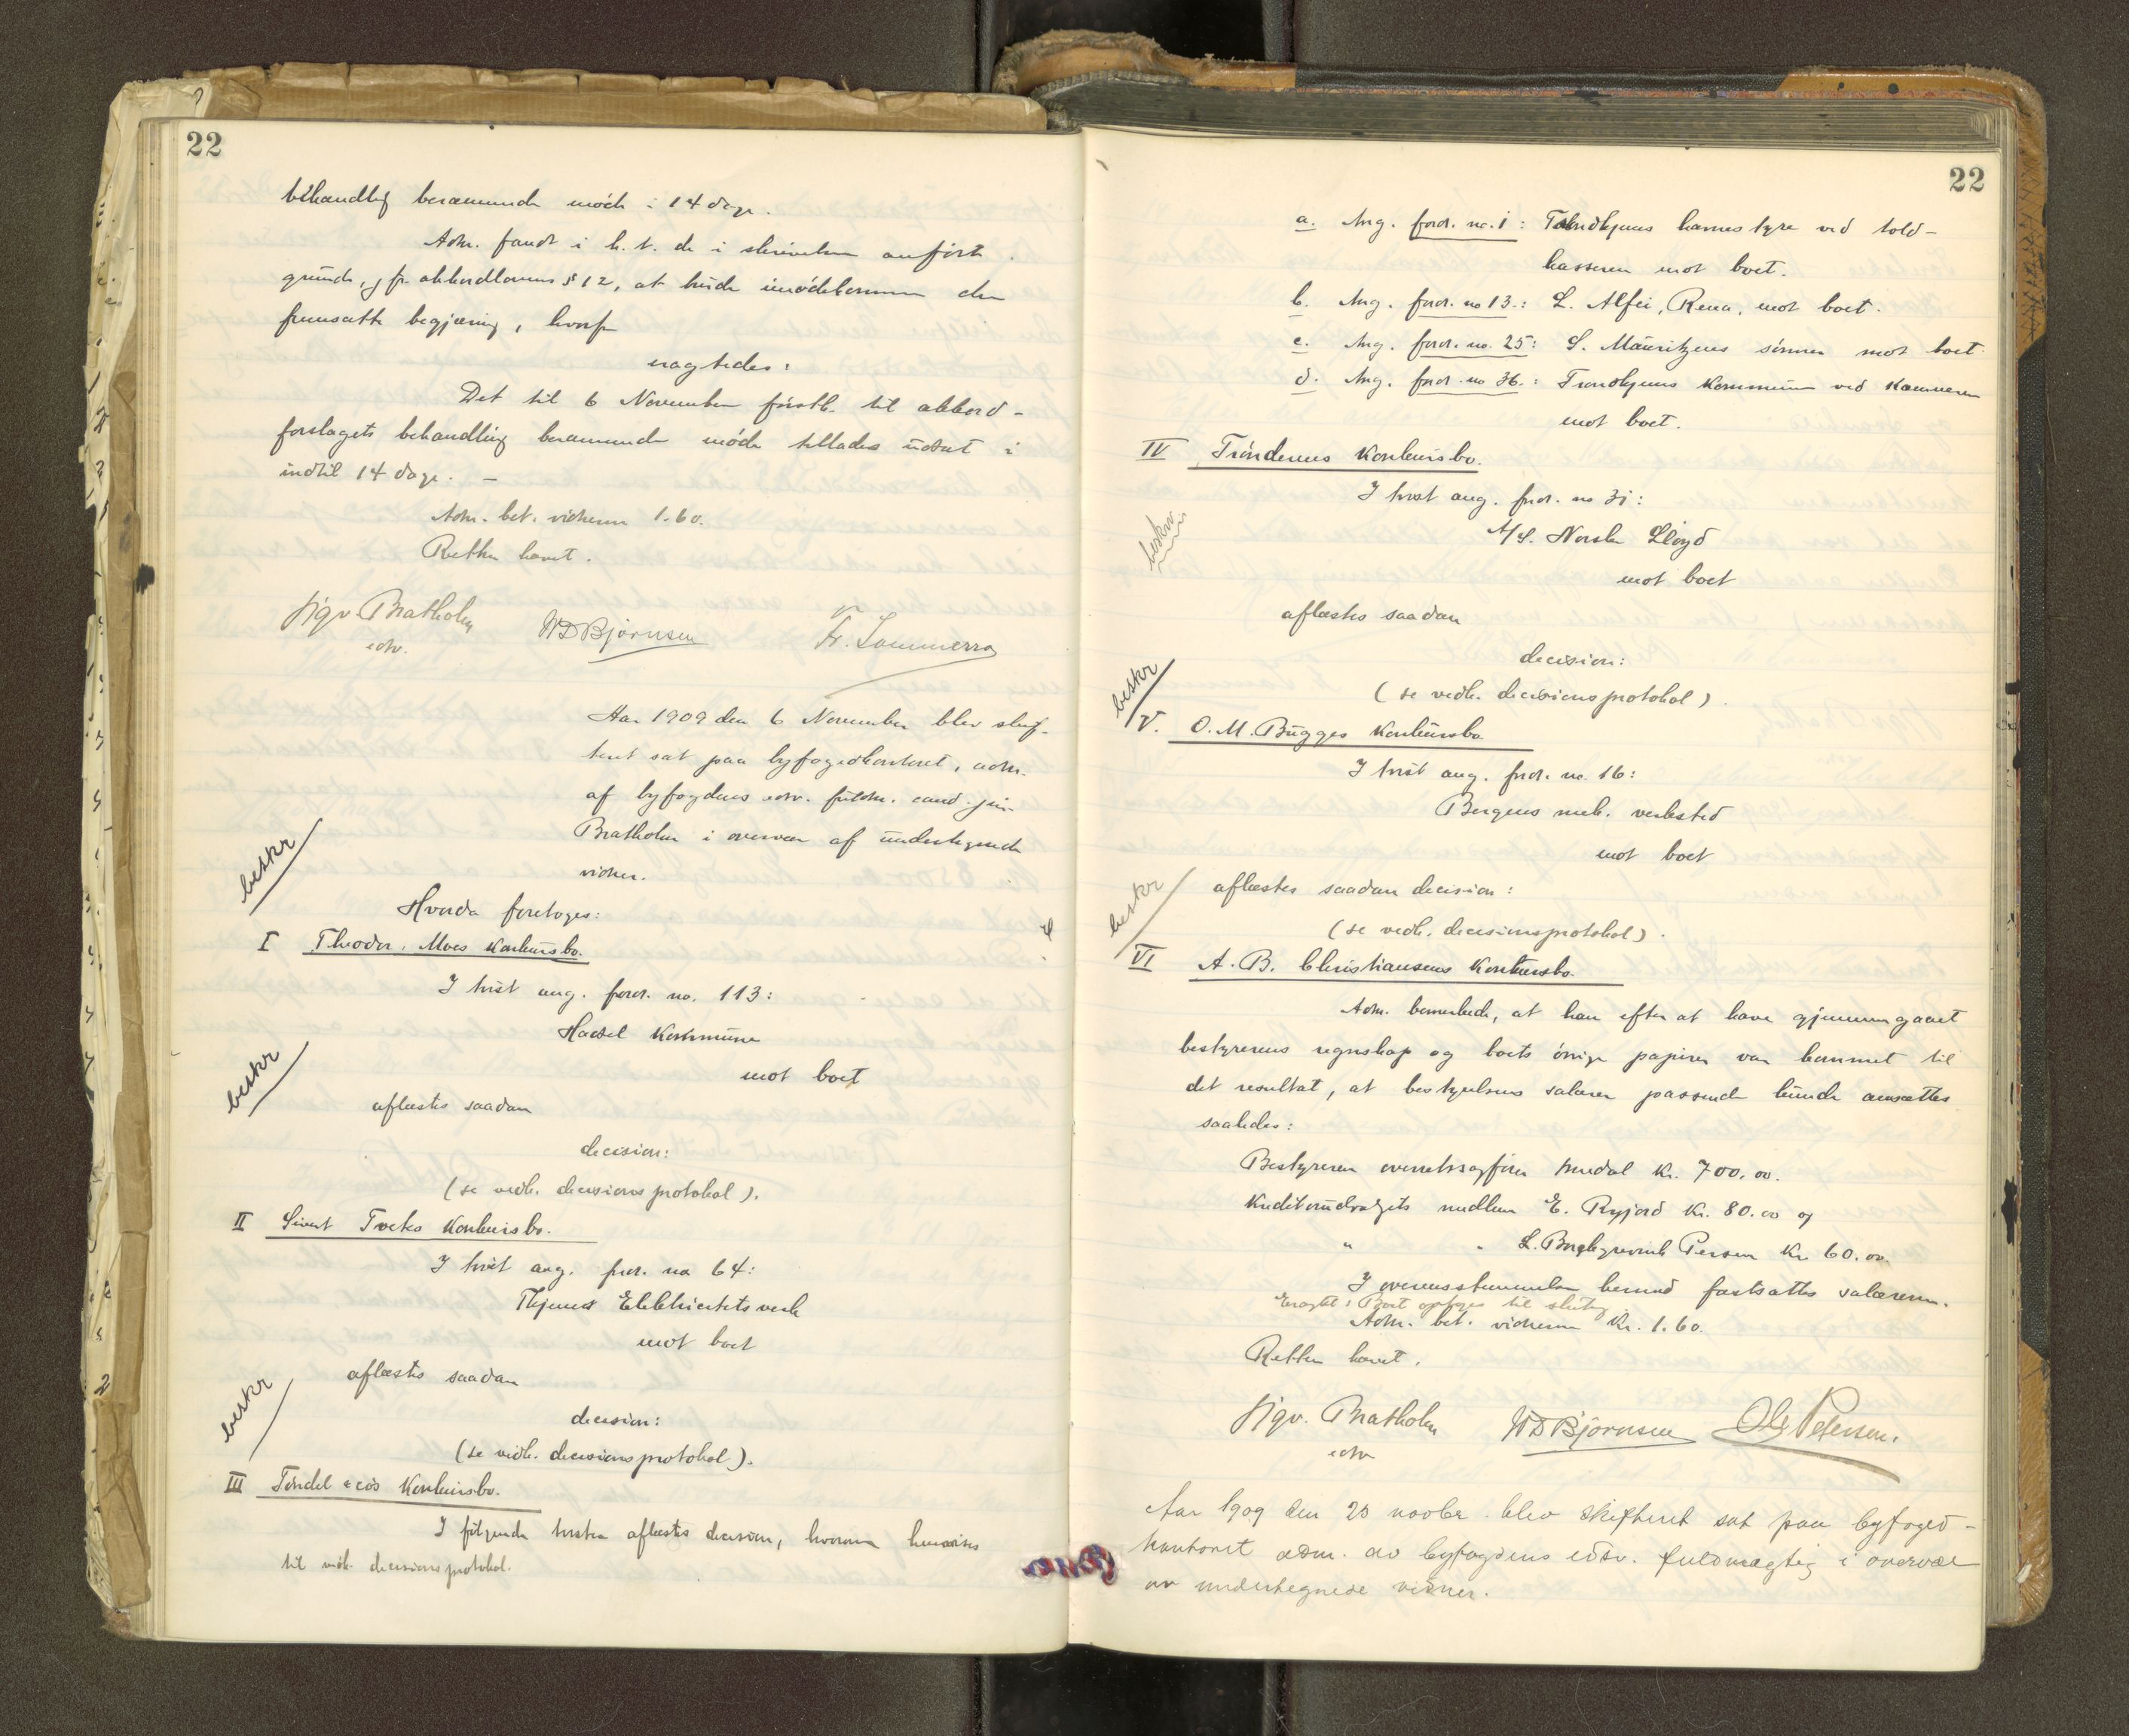 22
behandling berammede møde i 14 dage.
Adm. fandt i h. t. de i skrivelsen anførte
grunde, jfr. akkordlovens § 12, at burde imødekomme den
fremsatte begjæring, hvorfor
eragtedes:
Det til 6 November førstk. til akkord-
forslagets behandling berammede møde tillades udsat i
indtil 14 dage. —
Adm. bet. vidnerne 1.60.
Retten hævet.
Sigv. Bratholm
edsv.
WDBjørnsen
Fr. Sommerro
Aar 1909 den 6 November blev skif-
teret sat paa byfogedkontoret, adm.
af byfogdens edsv. fuldm. cand. jur.
Bratholm i overvær af undertegnede
vidner.
beskr
Hvorda foretoges:
I Theodor Moes Konkursbo.
I tvist ang. ford. no. 113:
Hadsel Kommune
mot boet
beskr
aflæstes saadan
decision:
(se vedk. decisionsprotokol).
II Sivert Tvetes Konkursbo.
I tvist ang. ford. no 64:
Thjems Elektricitetsverk
mot boet
beskr
aflæstes saadan
decision:
(se vedk. decisionsprotokol).
III Tøndel & cos Konkursbo.
I følgende tvister aflæstes decision, hvorom henvises
til vedk. decisionsprotokol.
22
a. Ang. ford. no. 1: Trondhjems havnestyre ved told-
kasseren mot boet.
b. Ang. ford. no 13.: L. Alfei, Rena, mot boet.
c. Ang. ford. no. 25: S. Mauritzens sønner mot boet.
d. Ang. ford. no 36.: Trondhjems Kommune ved Kæmneren
mot boet.
IV Trøndernes Konkursbo.
I tvist ang. ford. no 31:
beskr
A/S. Norske Lloyd
mot boet
aflæstes saadan
decision:
(se vedk. decisionsprotokol).
beskr
V. O. M. Bugges Konkursbo
I tvist ang. ford. no. 16:
Bergens mek. verksted
mot boet
beskr
aflæstes saadan decision:
(se vedk. decisionsprotokol).
VI A. B. Christiansens Konkursbo.
Adm. bemerkede, at han efter at have gjennemgaaet
bestyrerens regnskap og boets øvrige papirer var kommet til
det resultat, at bestyrelsens salærer passende kunde ansættes
saaledes:
Bestyreren overretssagfører Kr. 700.00.
Kreditorudvalgets medlem E. Ryjord Kr. 80.00 og
" " L. Borchgrevink Persen Kr 60.00.
I overensstemmelse hermed fastsattes salærerne.
Eragtet: Boet optages til slutning
Adm. bet. vidnerne Kr. 1.60.
Retten hævet.
Sigv. Bratholm
edsv
WDBjørnsen
Ole Petersen.
Aar 1909 den 20 novbr. blev skifteret sat paa byfoged-
kontoret adm. av byfogdens edsv. fuldmægtig i overvær
av undertegnede vidner.